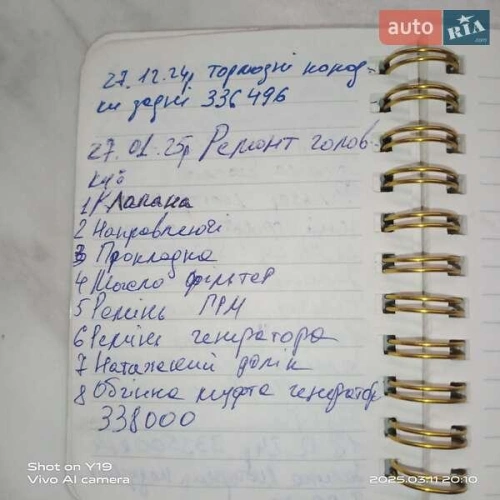 auto RIA
.com
27.12.24р тормозні колод-
ки задні 336496
27.01.25р Ремонт голов-
ки
1 Клапана
2 Направляючі
3 Прокладка
4 Масло фільтер
5 Ремінь ГРМ
6 Ремінь генератора
7 Натяжний ролік
8 Обгінна муфта генератор
338000
Shot on Y19
Vivo AI camera
2025.03.11 20:10